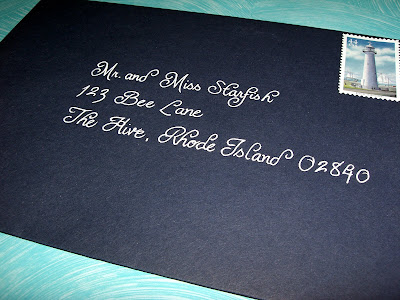 44
Mr. and Miss Starfish
123 Bee Lane
The Hive, Rhode Island 02840